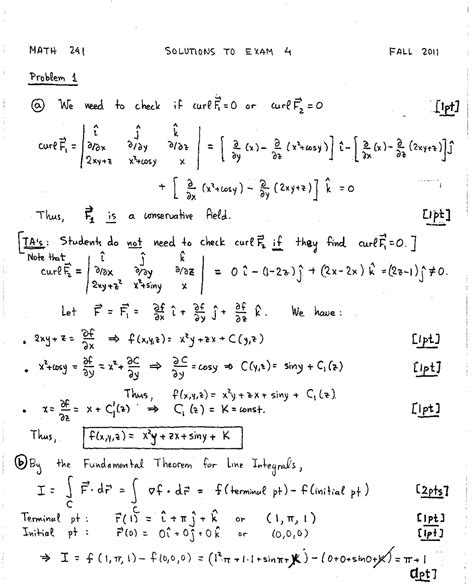 MATH 241 SOLUTIONS TO EXAM 4 FALL 2011
Problem 1
(a) We need to check if curl F⃗₁ = 0 or curl F⃗₂ = 0 [1pt]
curl F⃗₁ = | î ĵ k̂ ; ∂/∂x ∂/∂y ∂/∂z ; 2xy+z x²+cosy x | = [∂/∂y (x) - ∂/∂z (x²+cosy)] î - [∂/∂x (x) - ∂/∂z (2xy+z)] ĵ
+ [∂/∂x (x²+cosy) - ∂/∂y (2xy+z)] k̂ = 0
Thus, F⃗₁ is a conservative field. [1pt]
[TA's: Students do not need to check curl F⃗₂ if they find curl F⃗₁ = 0.]
Note that
curl F⃗₂ = | î ĵ k̂ ; ∂/∂x ∂/∂y ∂/∂z ; 2xy+z² x²+siny x | = 0 î - (1-2z) ĵ + (2x-2x) k̂ = (2z-1) ĵ ≠ 0.
Let F⃗ = F⃗₁ = ∂f/∂x î + ∂f/∂y ĵ + ∂f/∂z k̂. We have:
• 2xy+z = ∂f/∂x ⇒ f(x,y,z) = x²y + zx + C(y,z) [1pt]
• x²+cosy = ∂f/∂y = x² + ∂C/∂y ⇒ ∂C/∂y = cosy ⇒ C(y,z) = siny + C₁(z) [1pt]
Thus, f(x,y,z) = x²y + zx + siny + C₁(z).
• x = ∂f/∂z = x + C₁'(z) ⇒ C₁(z) = K = const. [1pt]
Thus, f(x,y,z) = x²y + zx + siny + K
(b) By the Fundamental Theorem for Line Integrals,
I = ∫_C F⃗ · dr⃗ = ∫_C ∇f · dr⃗ = f(terminal pt) - f(initial pt) [2pts]
Terminal pt : r⃗(1) = î + π ĵ + k̂ or (1, π, 1) [1pt]
Initial pt : r⃗(0) = 0î + 0ĵ + 0k̂ or (0,0,0) [1pt]
⇒ I = f(1, π, 1) - f(0,0,0) = (1²·π + 1·1 + sinπ + K) - (0+0+sin0+K) = π + 1
[1pt]